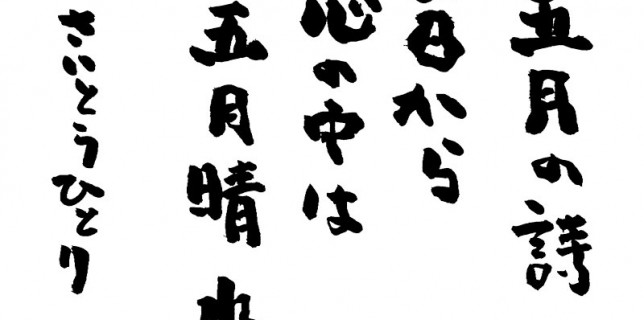 五月の詩
日から
心の中は
五月晴
さいとうひとり